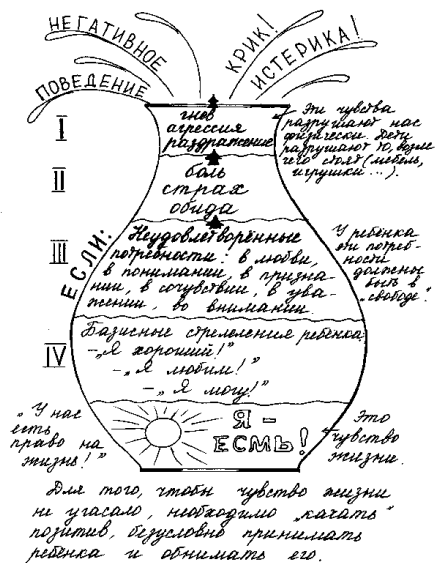 НЕГАТИВНОЕ
ПОВЕДЕНИЕ
КРИК!
ИСТЕРИКА!
I
гнев
агрессия
раздражение
Эти чувства
разрушают нас
физически. Дети
разрушают то, возле
чего стоят (мебель,
игрушки ...).
II
боль
страх
обида
ЕСЛИ:
III
Неудовлетворённые
потребности: в любви,
в понимании, в призна-
нии, в сочувствии, в ува-
жении, во внимании.
У ребёнка
эти потреб-
ности
должны
быть в
"свободе".
IV
Базисные стремления ребёнка:
- „Я хороший!"
- „Я любим!"
- „Я могу!"
„У нас
есть
право на
жизнь!"
Я -
ЕСМЬ!
Это
чувство
жизни.
Для того, чтобы чувство жизни
не угасало, необходимо „качать"
позитив, безусловно принимать
ребёнка и обнимать его.